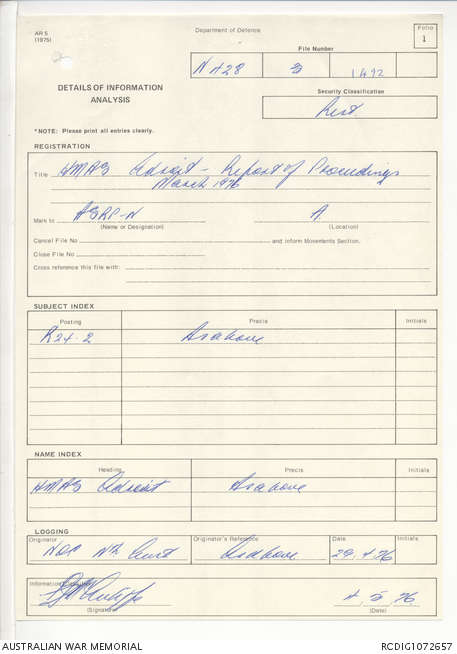 AR 5
(1975)
Department of Defence
Folio
1
File Number
N 428 3 1492
DETAILS OF INFORMATION
ANALYSIS
Security Classification
Rest.
*NOTE: Please print all entries clearly.
REGISTRATION
Title HMAS Adroit - Report of Proceedings
March 1976
Mark to ASRP-N A.
(Name or Designation) (Location)
Cancel File No and inform Movements Section.
Close File No
Cross reference this file with:
SUBJECT INDEX
Posting Precis Initials
R24-2 As above
NAME INDEX
Heading Precis Initials
HMAS Adroit As above
LOGGING
Originator Originator's Reference Date Initials
NOC Nth Aust As above 29.4.76
Information
(Signature) 4.5.76
(Date)
AUSTRALIAN WAR MEMORIAL RCDIG1072657